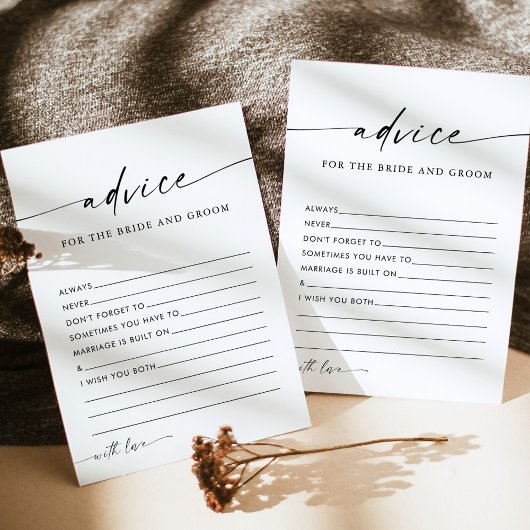 advice
FOR THE BRIDE AND GROOM
ALWAYS
NEVER
DON'T FORGET TO
SOMETIMES YOU HAVE TO
MARRIAGE IS BUILT ON
&
I WISH YOU BOTH
with love
advice
FOR THE BRIDE AND GROOM
ALWAYS
NEVER
DON'T FORGET TO
SOMETIMES YOU HAVE TO
MARRIAGE IS BUILT ON
&
I WISH YOU BOTH
with love